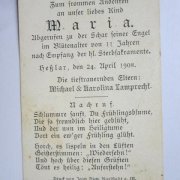 Zum frommen Andenken
an unser liebes Kind
Maria.
Abgerufen zu der Schar seiner Engel
im Blütenalter von 11 Jahren
nach Empfang der hl. Sterbsakramente.
Heßlar, den 24. April 1908.
Die tieftrauernden Eltern:
Michael & Karolina Lamprecht.
Nachruf.
Schlummre sanft, Du Frühlingsblume,
Die so freundlich hier geblüht,
Und der nun im Heiligtume
Dort ein ew'ger Frühling glüht.
Horch, es lispeln in den Lüften
Geisterstimmen: „Wiedersehn“!
Und hoch über diesen Grüften
Tönt es heilig: „Auferstehn“!